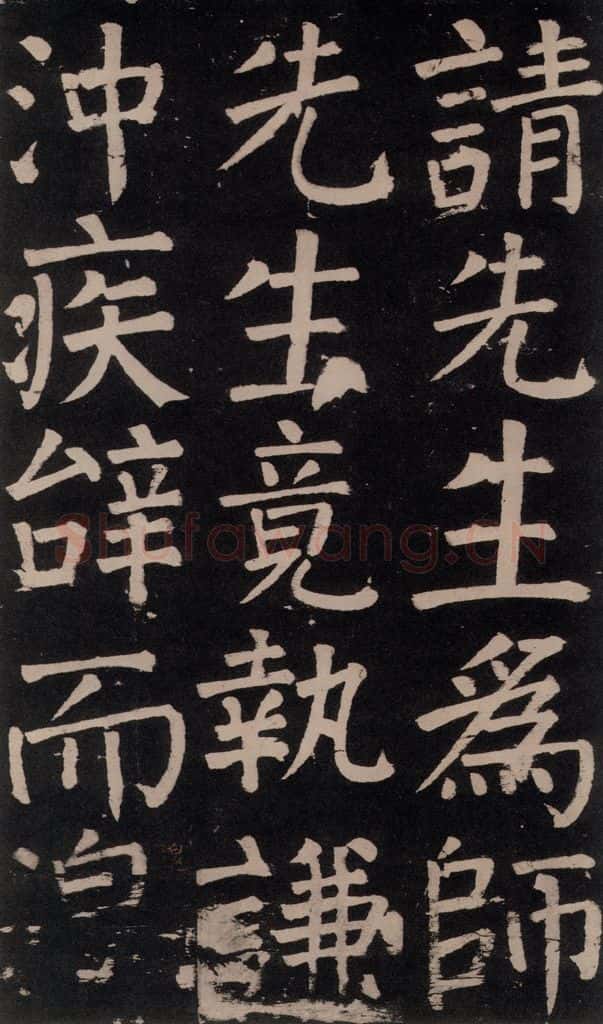 請先生為師
先生竟執謙
沖疾辝而
Shufawang.CN